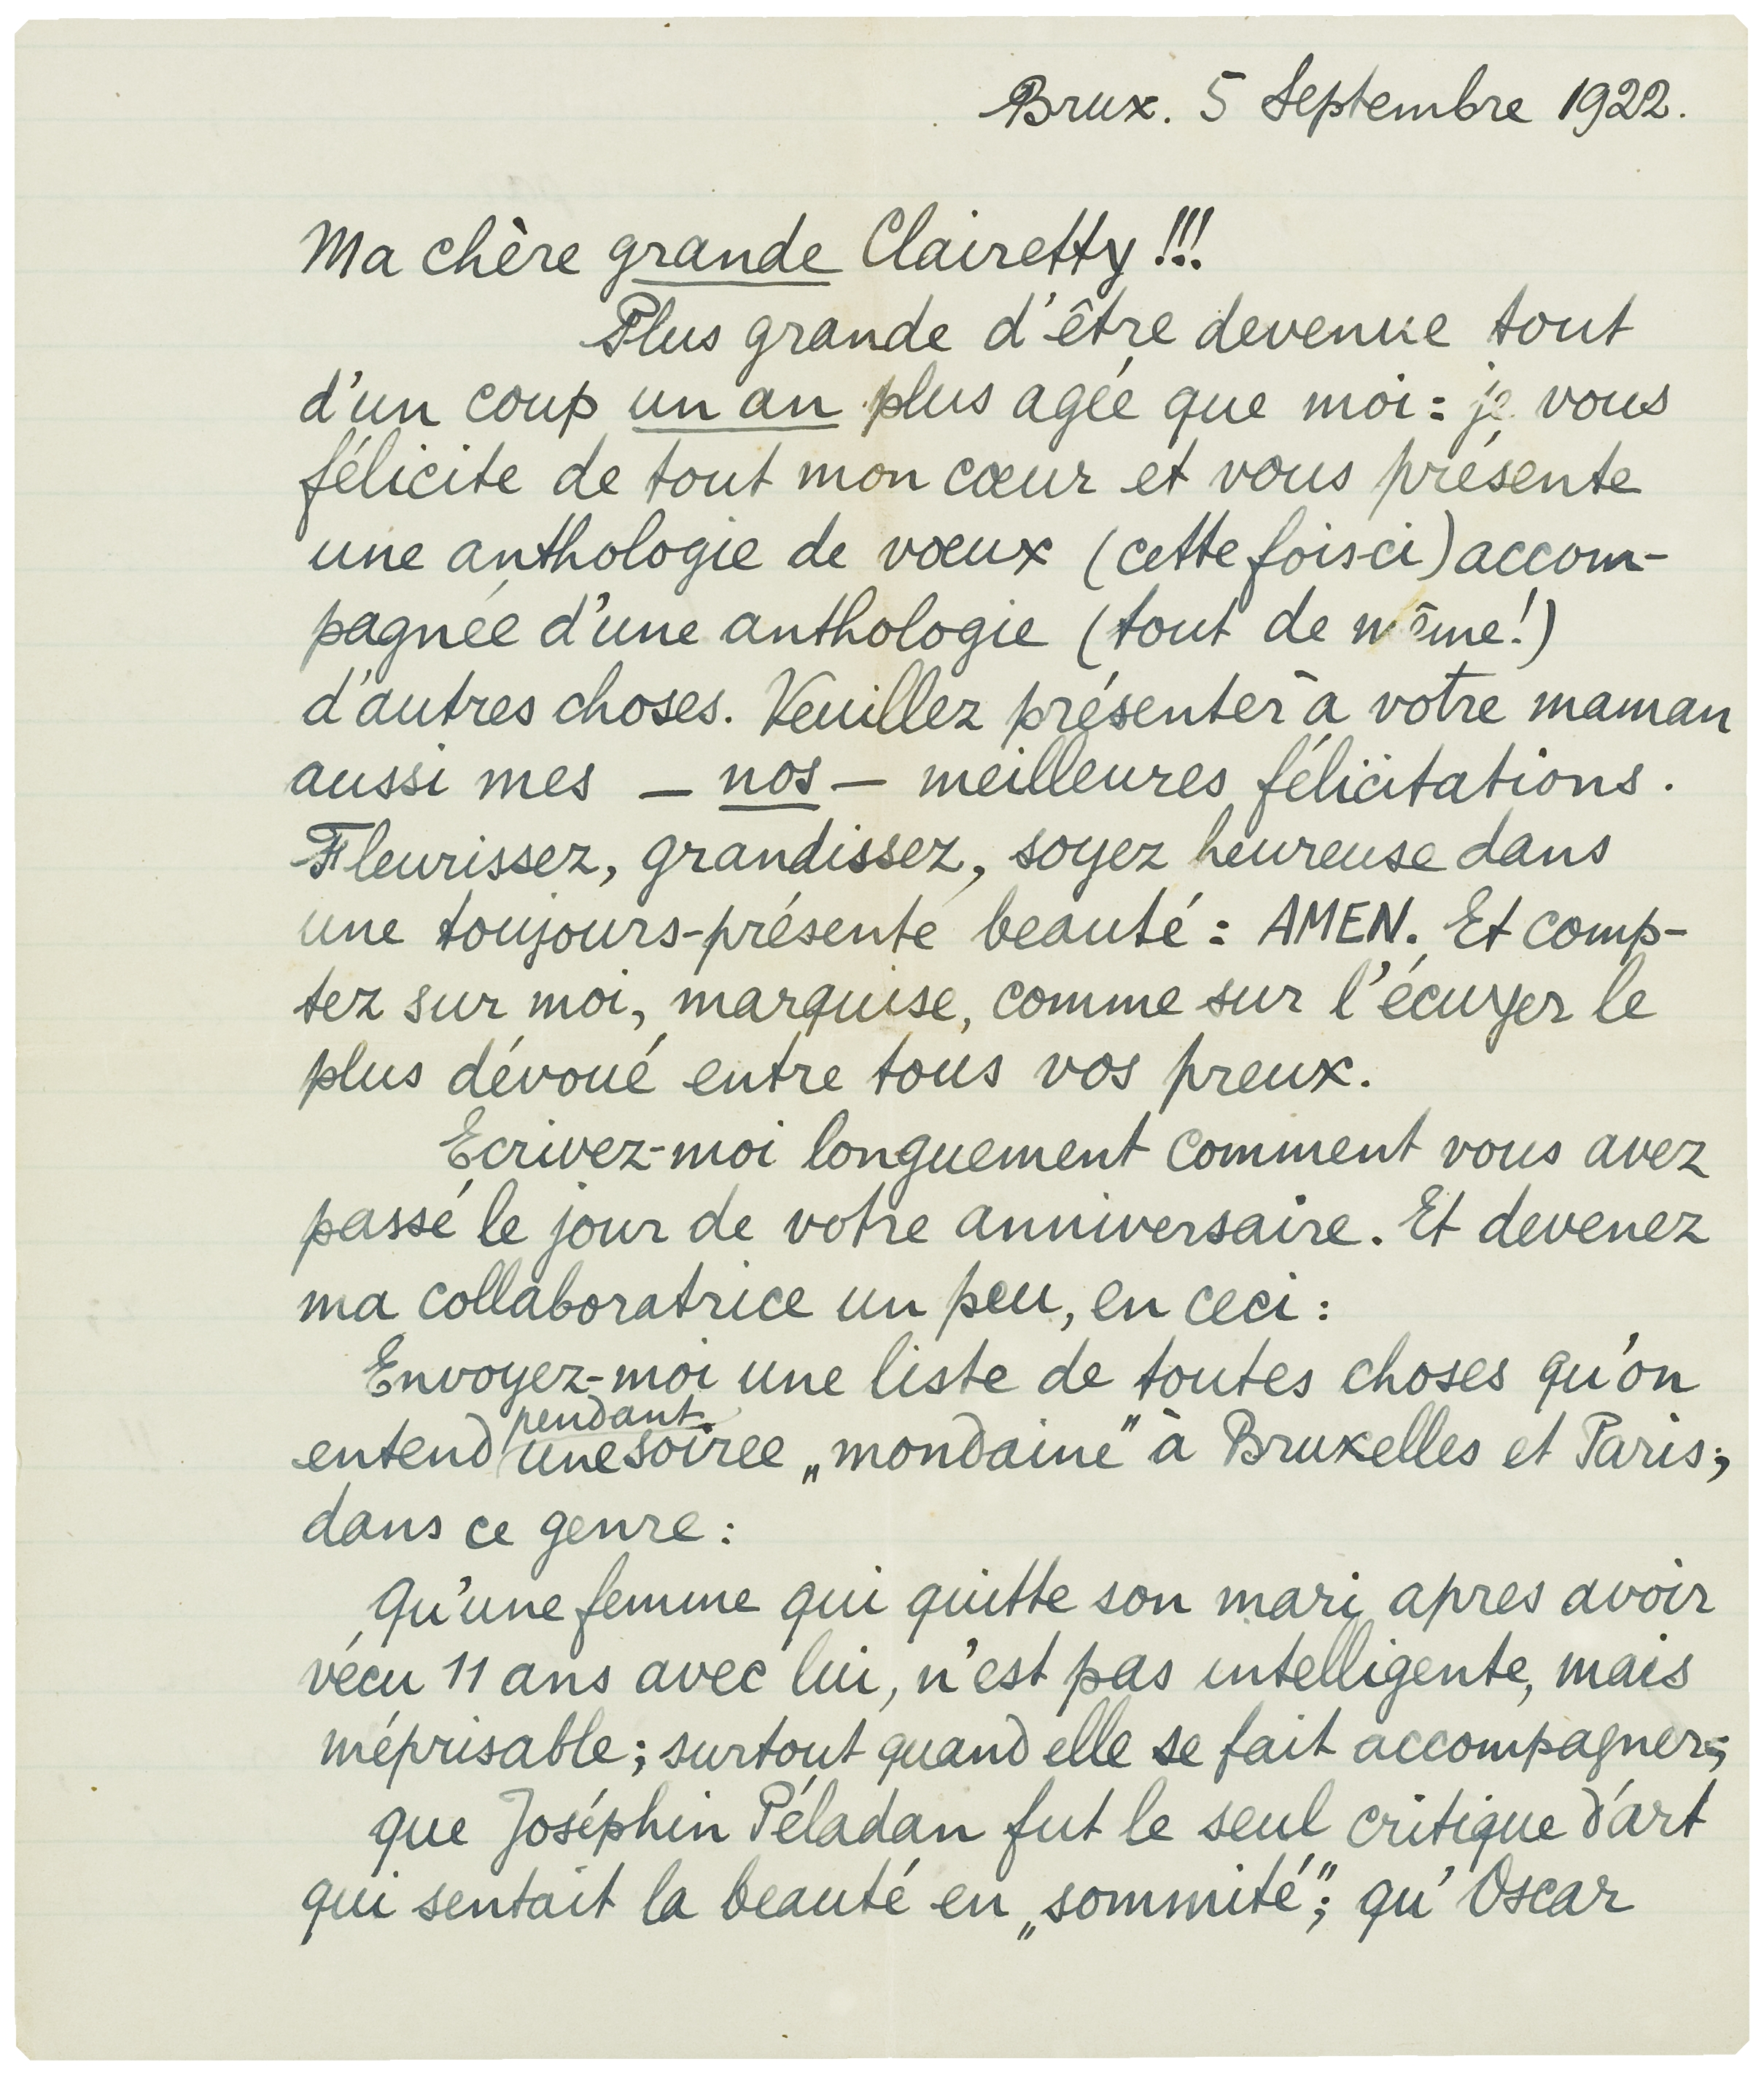 Brux. 5 Septembre 1922.
Ma chère grande Clairetty !!!
Plus grande d'être devenue tout
d'un coup un an plus agée que moi : je vous
félicite de tout mon cœur et vous présente
une anthologie de vœux (cette fois-ci) accom-
pagnée d'une anthologie (tout de même!)
d'autres choses. Veuillez présenter à votre maman
aussi mes — nos — meilleures félicitations.
Fleurissez, grandissez, soyez heureuse dans
une toujours-présente beauté : AMEN. Et comp-
tez sur moi, marquise, comme sur l'écuyer le
plus dévoué entre tous vos preux.
Ecrivez-moi longuement comment vous avez
passé le jour de votre anniversaire. Et devenez
ma collaboratrice un peu, en ceci :
Envoyez-moi une liste de toutes choses qu'on
entend pendant une soirée „mondaine" à Bruxelles et Paris;
dans ce genre :
Qu'une femme qui quitte son mari apres avoir
vécu 11 ans avec lui, n'est pas intelligente, mais
méprisable; surtout quand elle se fait accompagner;
que Joséphin Péladan fut le seul critique d'art
qui sentait la beauté en „sommité"; qu'Oscar